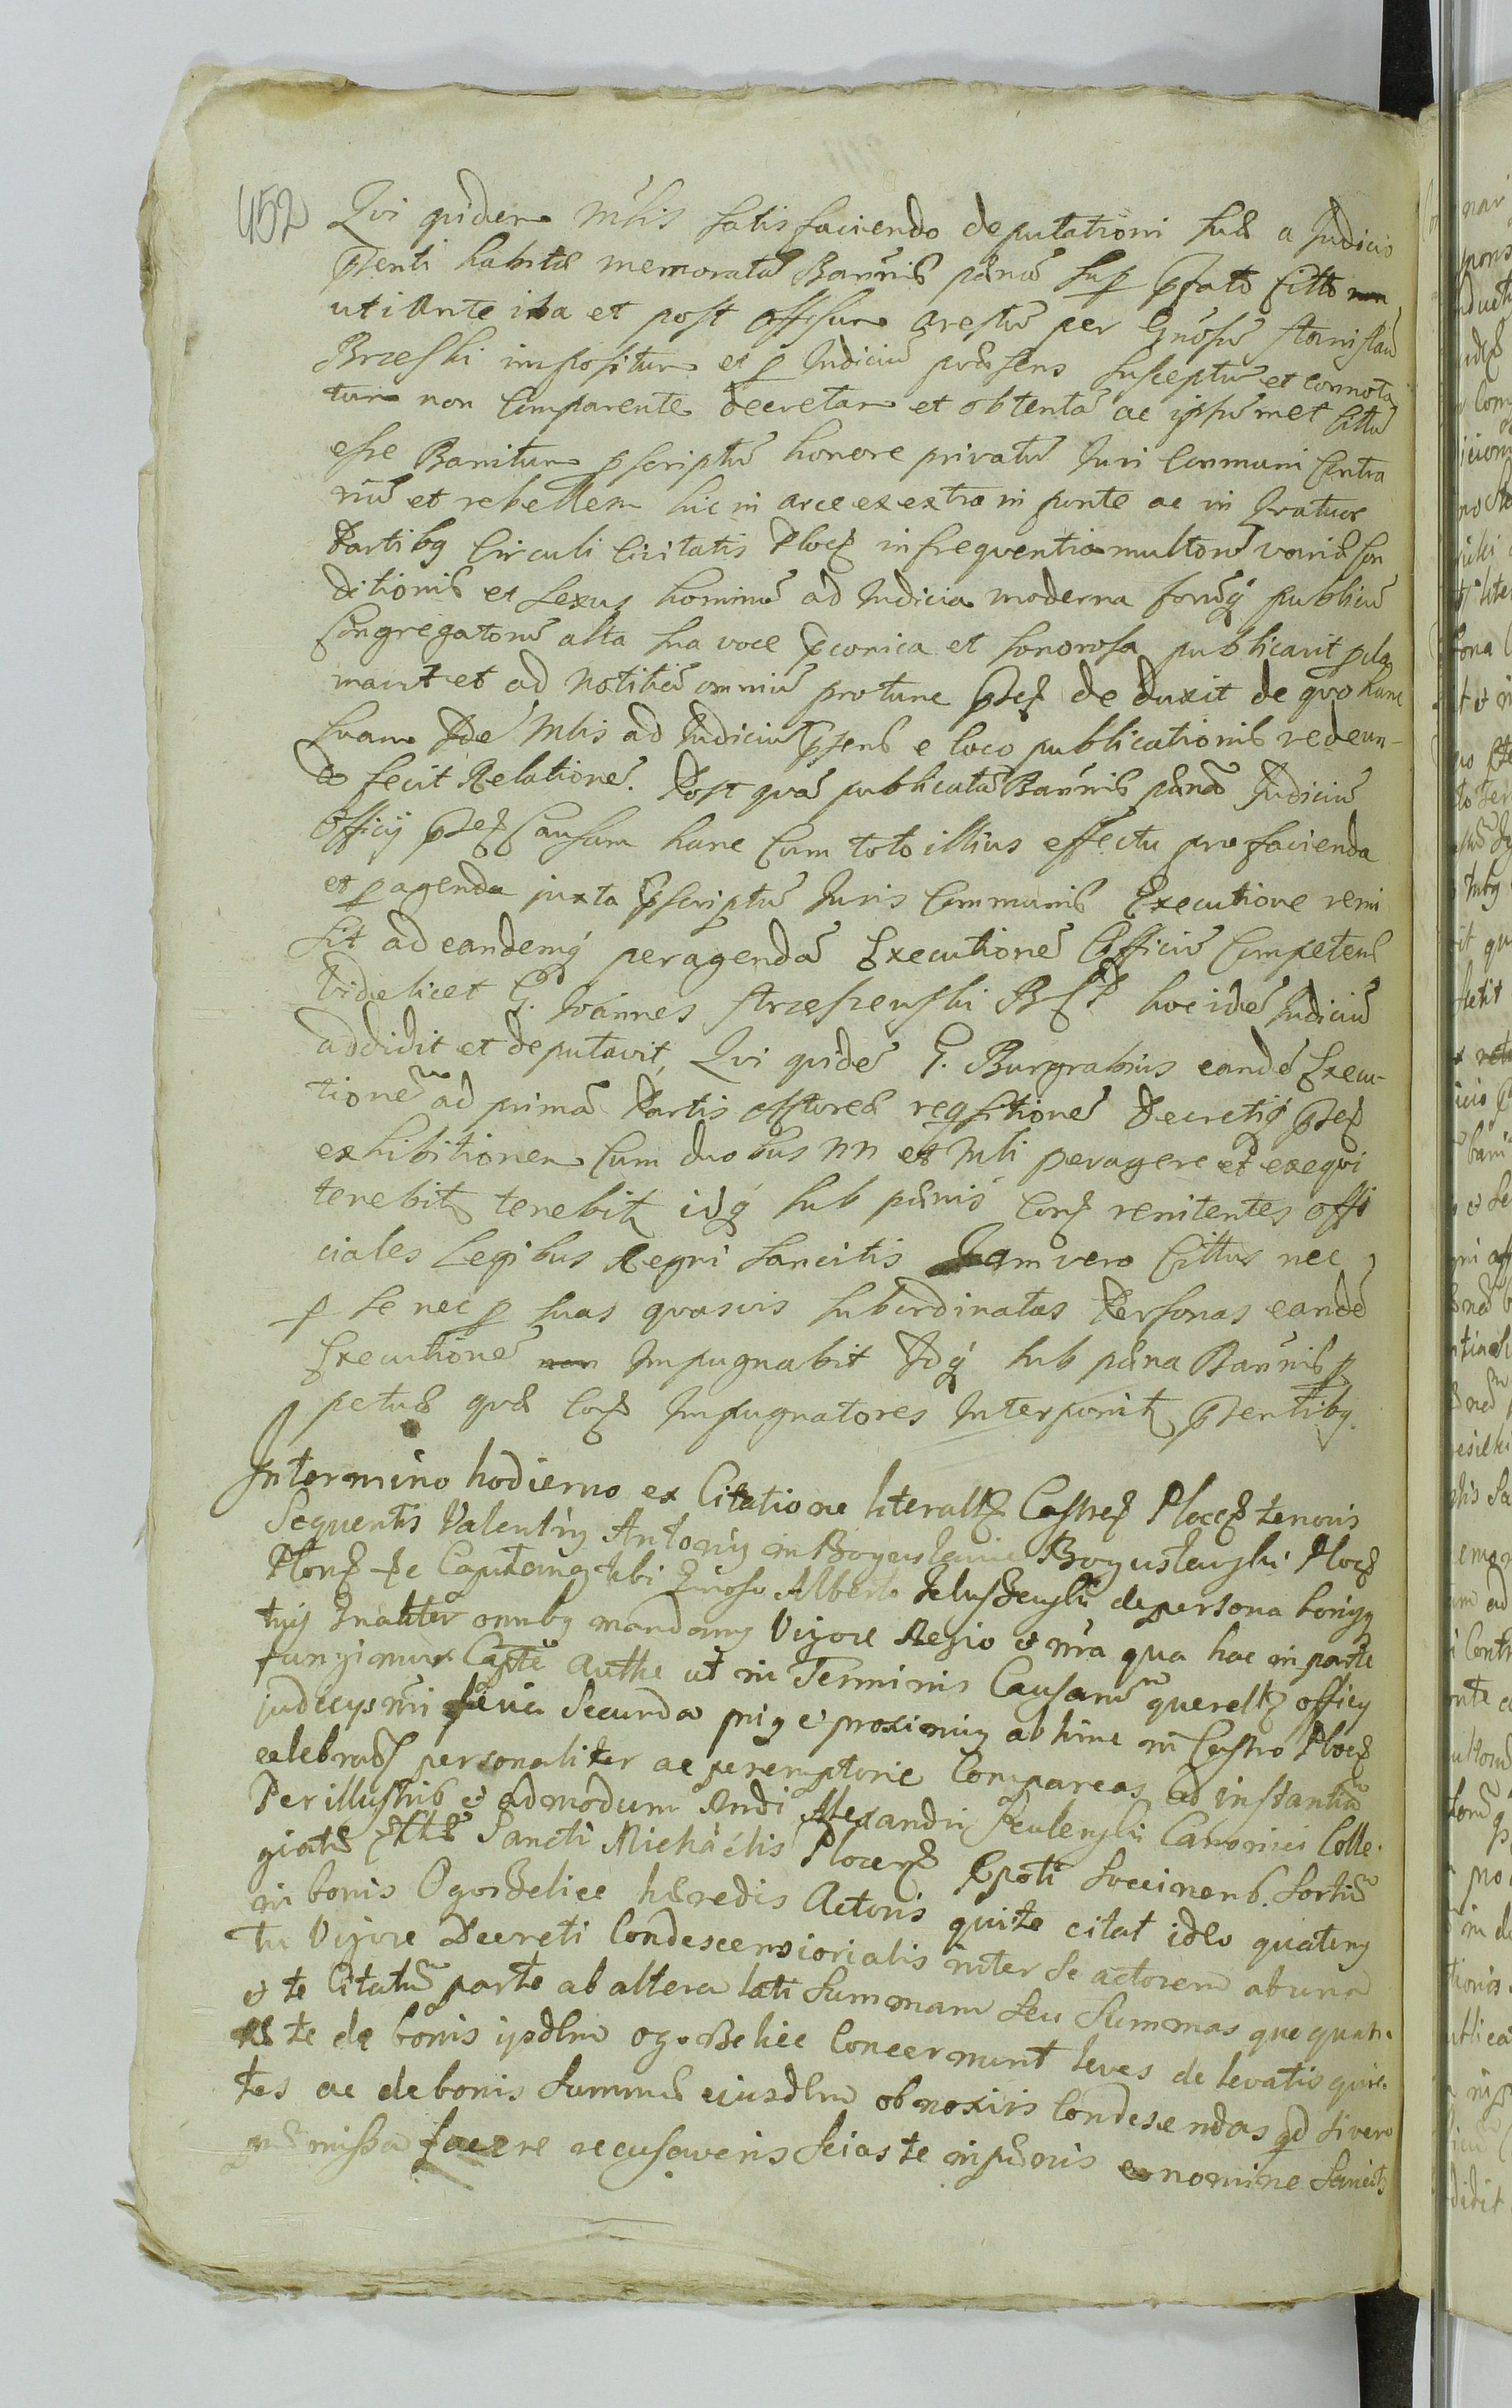 452
Qui quidem Mlis satisfaciendo deputationi suæ a Judicio
pnti habitæ memoratã Bannis pænã sup pfato Citto
uti ante ita et post offisum arestũ per Gnosũ Stanislaũ
Brzeski impositum et p Judiciũ præsens susceptũ et connota
tum non Comparente decretam et obtentã ac ipsũmet Cittũ
esse Banitum pscriptũ honore privatũ Iuri Communi Contra
riũ et rebellem hic in arce et extra in ponte ac in Quatuor
Partibg Circuli Civitatis Ploc infrequentia multorũ variæ Con
ditionis et sexus hominũ ad Iudicia moderna forũq publicũ
Congregatorũ alta sua voce pconica et sonorosa publicavit pcla
mavit et ad notitiã omniũ protunc pse deduxit de quo hanc
suam Idẽ Mlis ad Iudiciũ psens e loco publicationis redeun-
do fecit Relationẽ. Post quã publicatã Bannis pænã Judiciũ
Officij pse Causam hanc Cum toto illius effectu pro facienda
et pagenda juxta pscriptũ Iuris Communis Executione remi
sit ad eandemq peragendã Executionẽ Officiũ Competens
Videlicet G. Joannes Strzeszewski hoc idẽ Judiciũ
addidit et deputavit, Qui quidẽ G. Burgrabius eandẽ Execu-
tionẽ ad primã Partis afftureæ reqsitionẽ Decretiq pse
exhibitionem Cum duobus nn et Mli peragere et exeqvi
tenebit tenebit idq sub pænis Con renitentes offi
ciales Legibus Regni sancitis Jam vero Cittus nec
p se nec p suas quasvis subordinatas Personas eandẽ
Executionẽ non Impugnabit Idq sub pæna Bannis p
petuæ quæ Con Impugnatores Interponit psentibg.
In termino hodierno ex Citatione literall Castren Plocen tenoris
Sequentis Valentin Antonig in Boguslawice Boguslawski Ploc
Plon Capitaneg tibi Gnoso Alberto de persona bonisq
tuis Gnaliter omnibg mandamg Vigore Regio et nra qua hac in parte
fungimur Captli Autthe ut in Terminis Causarũ querell officy
judicys nri feria Secunda prig et proximig ab hinc in Castro Plocen
celebrad personaliter ac peremptorie Compareas Ad instantiã
Perillustris et admodum Rndi Alexandri Canonici Colle.
giatæ Sancti Michaelis Plocen sortiũ
in bonis hæredis Actoris qui te citat ideo quateng
Tu Vigore Decreti Condescensiorialis inter se actorem ab una
et te Citatũ parte ab altera lati Summam seu Summas que quan.
te de bonis ipsdlm Concernunt leves de levatis quie.
tes ac de bonis summæ eiusdlm obnoxiis Condescendas qd si vero
præmissa facere recusaveris scias te in pænis eo nomine sancit